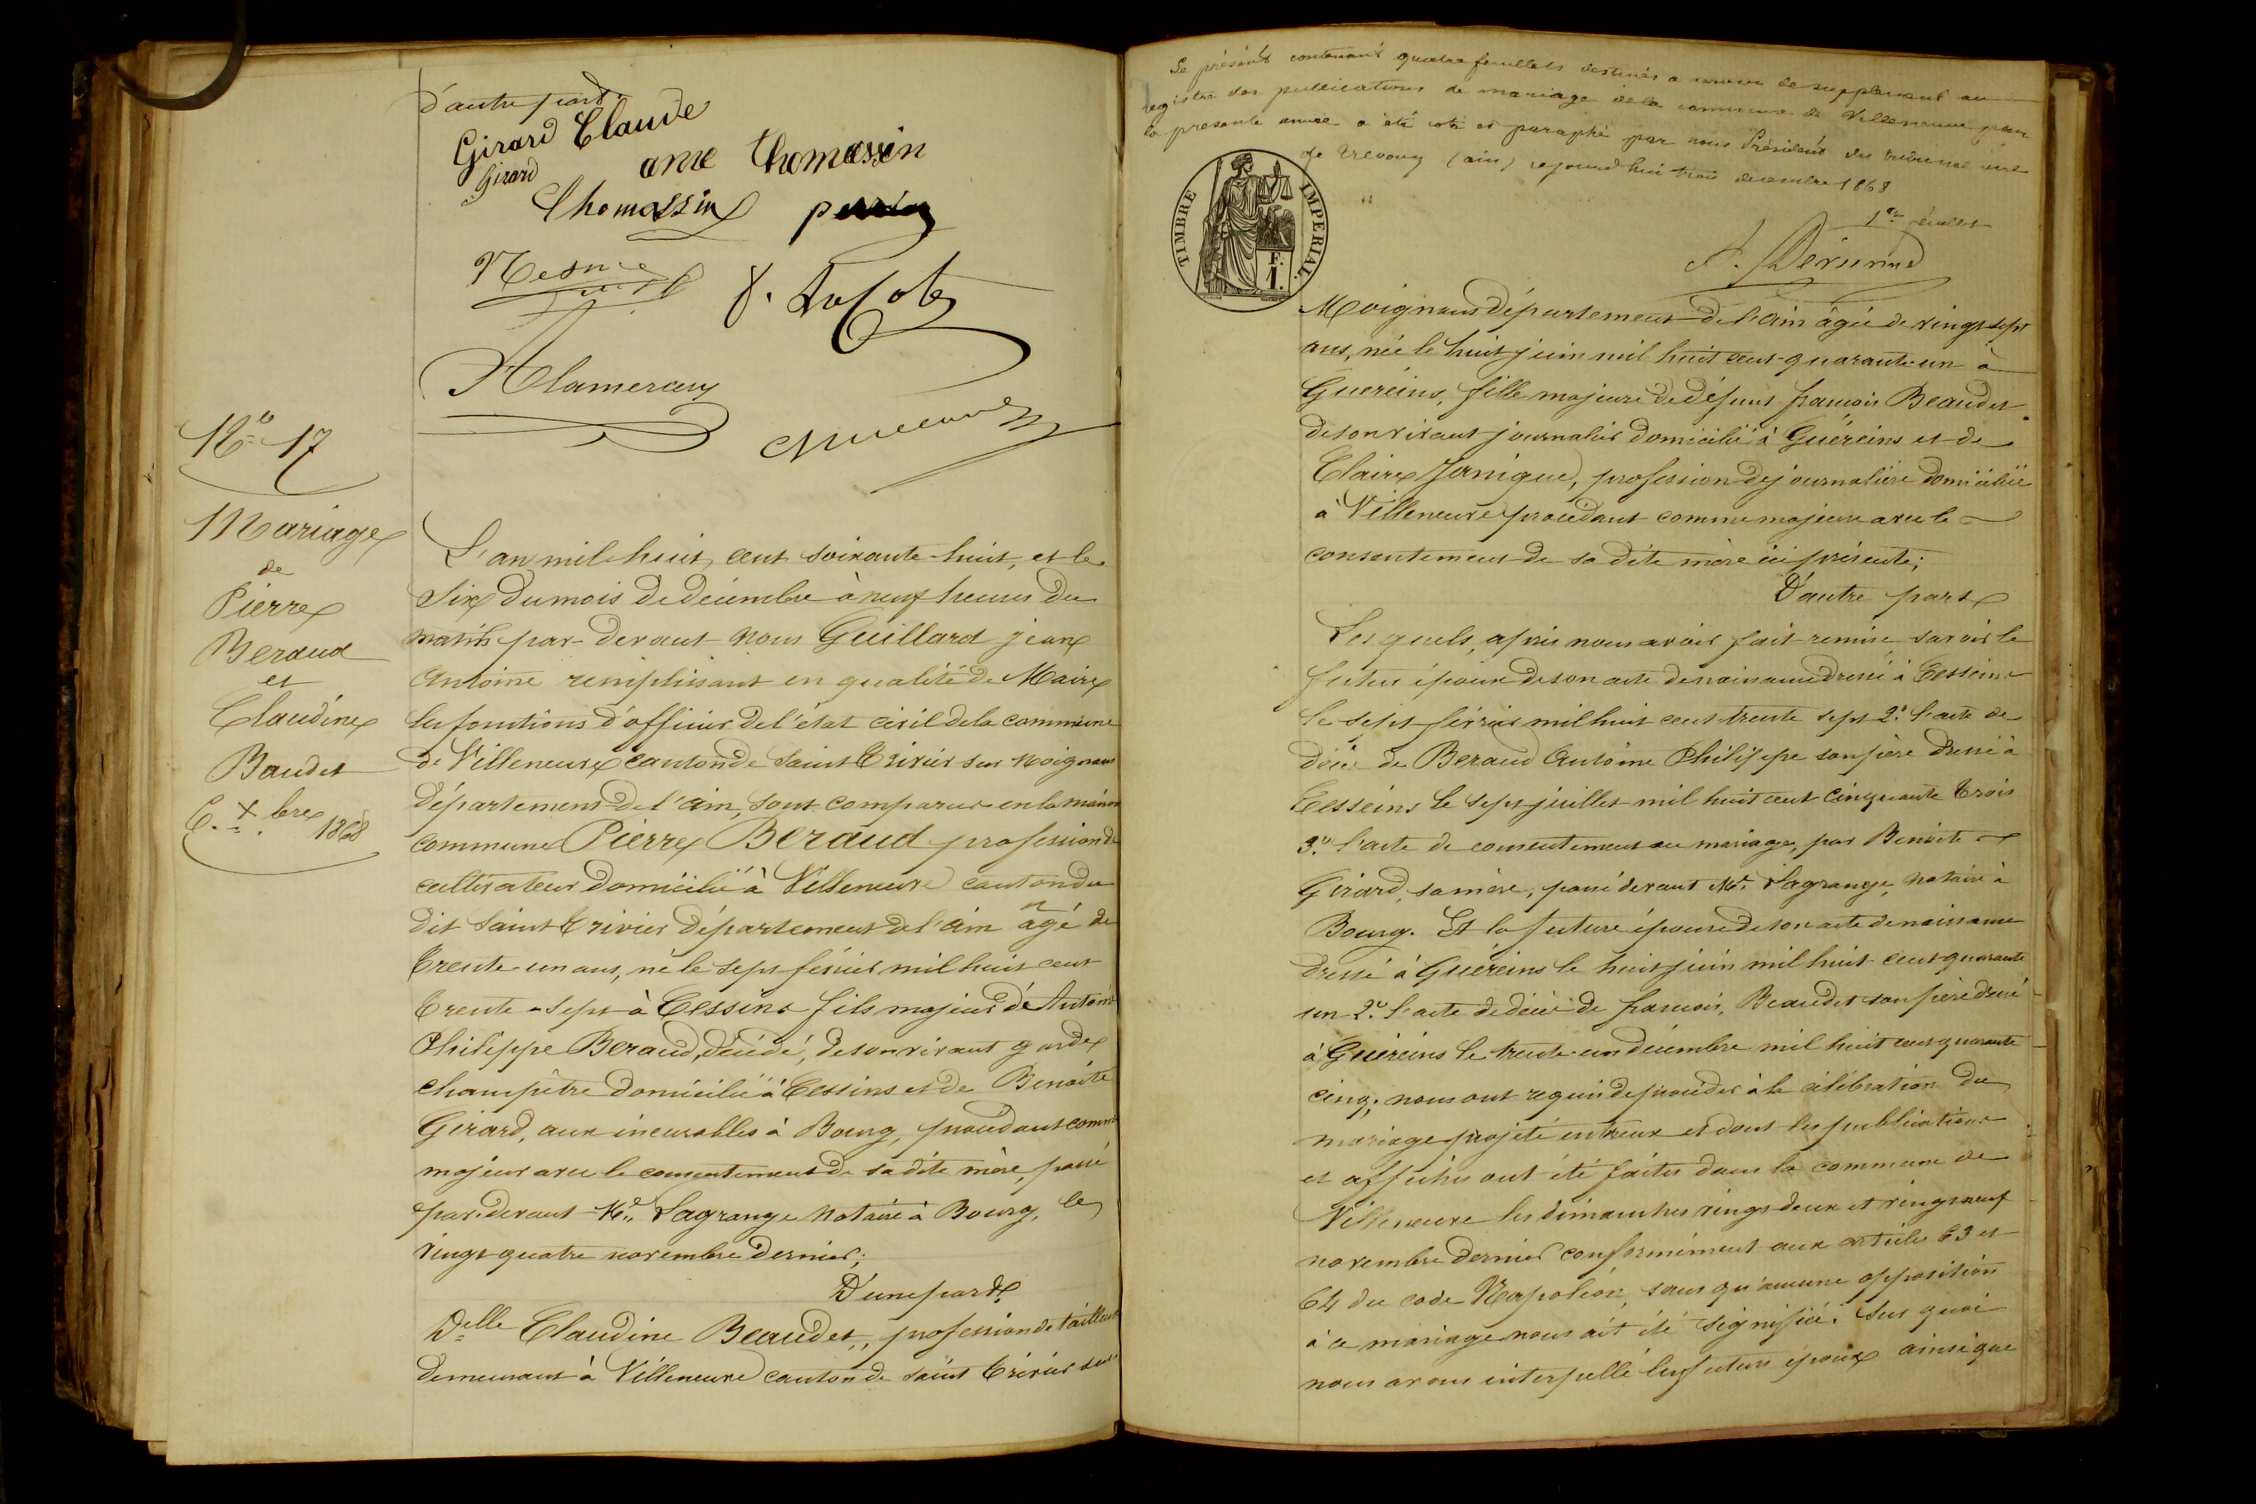 d'autre part.
Girard Claude
Girard
ane Thomassin
Thomassin
perrin
Mesnie
Alamercery
No 17
Mariage
de
Pierre
Beraud
et
Claudine
Baudet
6. Xbre 1868
L'an mil huit cent soixante-huit, et le
six du mois de décembre à neuf heures du
matin par-devant nous Guillard jean
Antoine remplissant en qualité de Maire
les fonctions d'officier de l'état civil de la commune
de Villeneuve canton de Saint Trivier sur Moignans
département de l'ain, sont comparus en la maison
commune Pierre Beraud profession de
cultivateur domicilié à Villeneuve canton du
dit Saint Trivier département de l'ain agé de
trente un ans, né le sept février mil huit cent
trente-sept à Cessins fils majeur de Antoine
Philippe Beraud, décédé, de son vivant garde
champêtre domicilié à Cessins et de Benoite
Girard, aux incurables à Bourg, procédant comme
majeur avec le consentement de sa dite mère, passé
par-devant Me. Lagrange Notaire à Bourg, le
vingt quatre novembre dernier;
D'une part.
Delle Claudine Beaudet, profession de tailleuse
demeurant à Villeneuve canton de Saint Trivier sur
Le présent contenant quatre feuillets destinés a servir de supplément au
registre des publications de mariage de la commune de Villeneuve pour
la presente année a été coté et paraphé par nous Président du tribunal civil
de Trevoux (ain) cejourd'hui trois decembre 1868
1er feuillet
TIMBRE IMPERIAL.
F.
1.
Moignans département de l'ain âgée de vingt sept
ans, née le huit juin mil huit cent-quarante-un à
Guéreins, fille majeure de défunt françois Beaudet
de son vivant journalier domicilié à Guéreins et de
Claire Janique, profession de journalière domiciliée
à Villeneuve procédant comme majeure avec le
consentement de sa dite mère ici présente;
D'autre part
Lesquels, après nous avoir fait remise, savoir le
futur époux de son acte de naissance dressé à Cesseins
le sept février mil huit cent trente sept 2.° l'acte de
décès de Beraud Antoine Philippe son père dressé à
Cesseins le sept juillet mil huit cent cinquante trois
3.° l'acte de consentement au mariage, par Benoite
Girard, sa mère, passé devant Me. Lagrange, Notaire à
Bourg. Et la future épouse de son acte de naissance
dressé à Guéreins le huit juin mil huit cent quarante
un 2.° l'acte de décès de françois, Beaudet son père dressé
à Guéreins le trente-un décembre mil huit cent quarante
cinq; nous ont requis de procéder à la célébration du
mariage projeté entr'eux et dont les publications
et affiches ont été faites dans la commune de
Villeneuve les dimanches vingt-deux et vingt neuf
novembre dernier conformément aux articles 63 et
64 du code Napoléon, sans qu'aucune opposition
à ce mariage nous ait été signifiée. Sur quoi
nous avons interpellé les futurs époux ainsi que